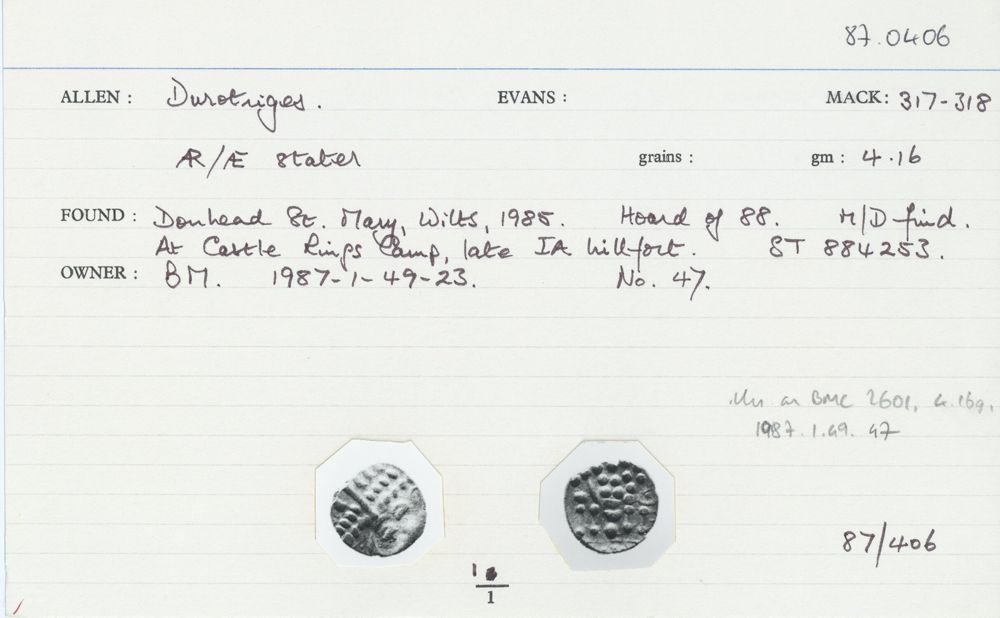 87.0406
ALLEN : Durotriges. EVANS : MACK: 317-318
AR/Æ stater grains : gm : 4.16
FOUND : Donhead St. Mary, Wilts, 1985. Hoard of 88. M/D find.
At Castle Rings Camp, late IA hillfort. ST 884253.
OWNER : BM. 1987-1-49-23. No. 47.
BMC 2601, 4.16g,
1987.1.49.47
87/406
1
1